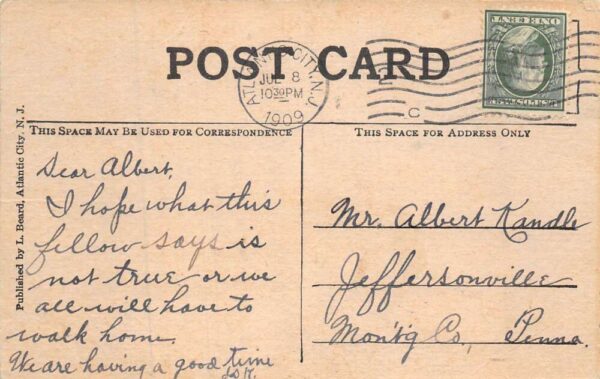 POST CARD
ATLANTIC CITY, N.J.
JUL 8
10 30 PM
1909
2
C
THIS SPACE MAY BE USED FOR CORRESPONDENCE
THIS SPACE FOR ADDRESS ONLY
Published by L. Beard, Atlantic City, N. J.
Dear Albert,
I hope what this
fellow says is
not true or we
all will have to
walk home.
We are having a good time
Mr. Albert Kandle
Jeffersonville
Mont'g Co., Penna.